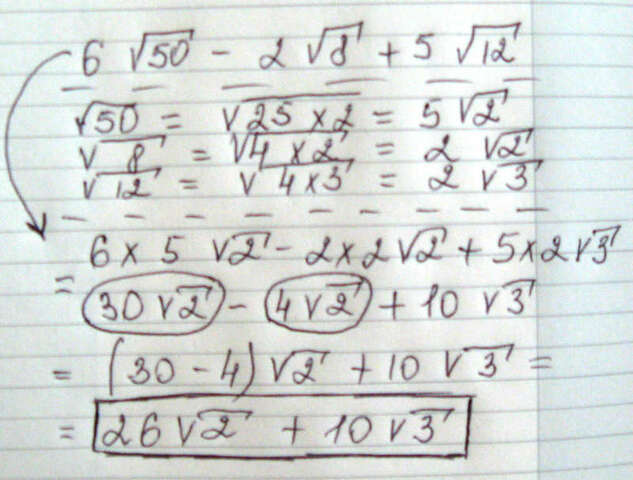 6 √50 - 2 √8 + 5 √12
√50 = √25 × 2 = 5 √2
√8 = √4 × 2 = 2 √2
√12 = √4×3 = 2 √3
6 × 5 √2 - 2×2 √2 + 5×2 √3
= 30 √2 - 4 √2 + 10 √3
= (30 - 4) √2 + 10 √3 =
= 26 √2 + 10 √3